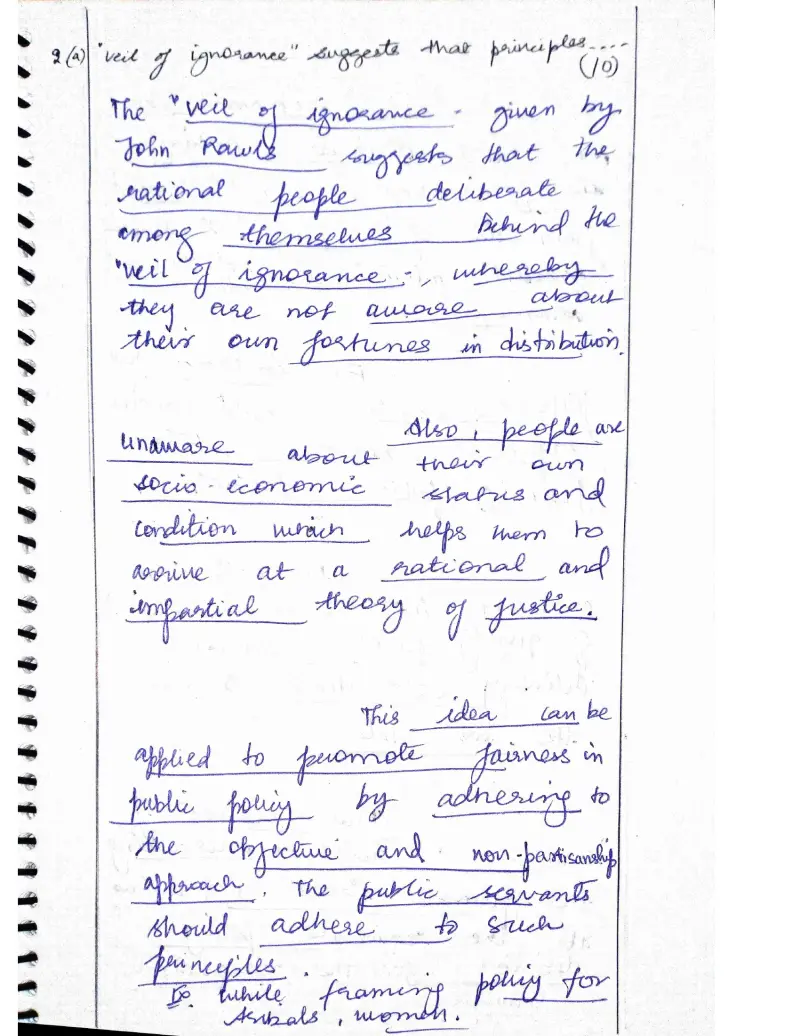 2(a) "veil of ignorance" suggests that principles....
(10)
The "veil of ignorance" given by
John Rawls suggests that the
rational people deliberate
among themselves behind the
"veil of ignorance", whereby
they are not aware about
their own fortunes in distribution.
Also, people are
unaware about their own
socio-economic status and
condition which helps them to
arrive at a rational and
impartial theory of justice.
This idea can be
applied to promote fairness in
public policy by adhering to
the objective and non-partisanship
approach. The public servants
should adhere to such
principles.
while framing policy for
tribals, women.